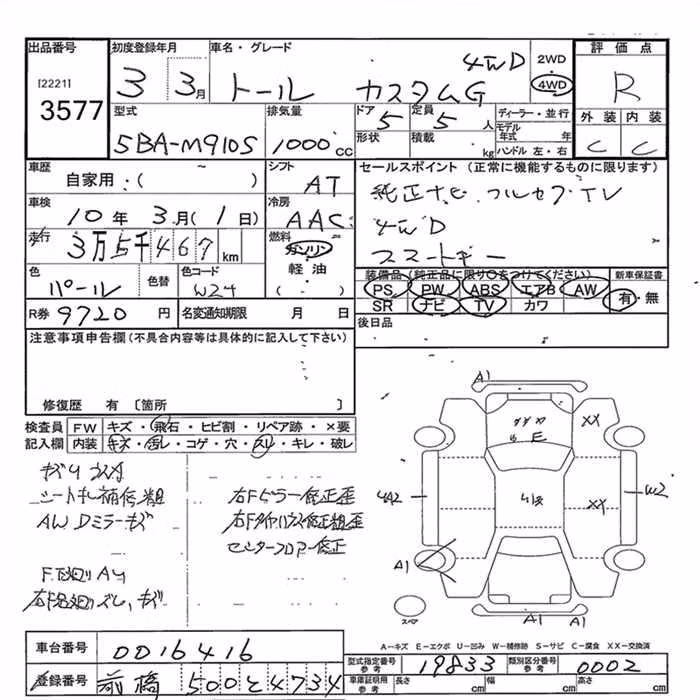 出品番号 初度登録年月 車名・グレード 評価点
[2221] 3577
3 3月 トール カスタムG 4WD 2WD 4WD R
型式 排気量 ドア 定員 ディーラー・並行 外装 内装
5BA-M910S 1000cc 5 5人 モデル年式 年 C C
形状 積載 kg ハンドル 左・右
車歴 シフト セールスポイント (正常に機能するものに限ります)
自家用:( ) AT 純正ナビ フルセグTV
車検 冷房 4WD
10年3月(1日) AAC スマートキー
走行 燃料 装備品 (純正品に限り○をつけてください) 新車保証書
3万5千467km ガソリン 軽油 ( - )
PS PW ABS エアB AW 有・無
SR ナビ TV カワ
色 色替 色コード
パール W24
後日品
R券 9720円 名変通知期限 月 日
注意事項申告欄(不具合内容等は具体的に記入して下さい)
修復歴 有 〔箇所 〕
検査員 FW キズ・飛石・ヒビ割・リペア跡・×要
記入欄 内装 キズ・汚レ・コゲ・穴・スレ・キレ・破レ
シート 補修
AW Dミラーキズ
右Fピラー修正歪
センターフロアー修正
A1
XX
E
XX
W2
A1
A1 A1
A-キズ E-エクボ U-凹み W-補修跡 S-サビ C-腐食 XX-交換済
車台番号 0016416
型式指定番号 参考 19833 類別区分番号 参考 0002
登録番号 前橋 500 そ 4734
車庫証明用 参考 長さ cm 幅 cm 高さ cm